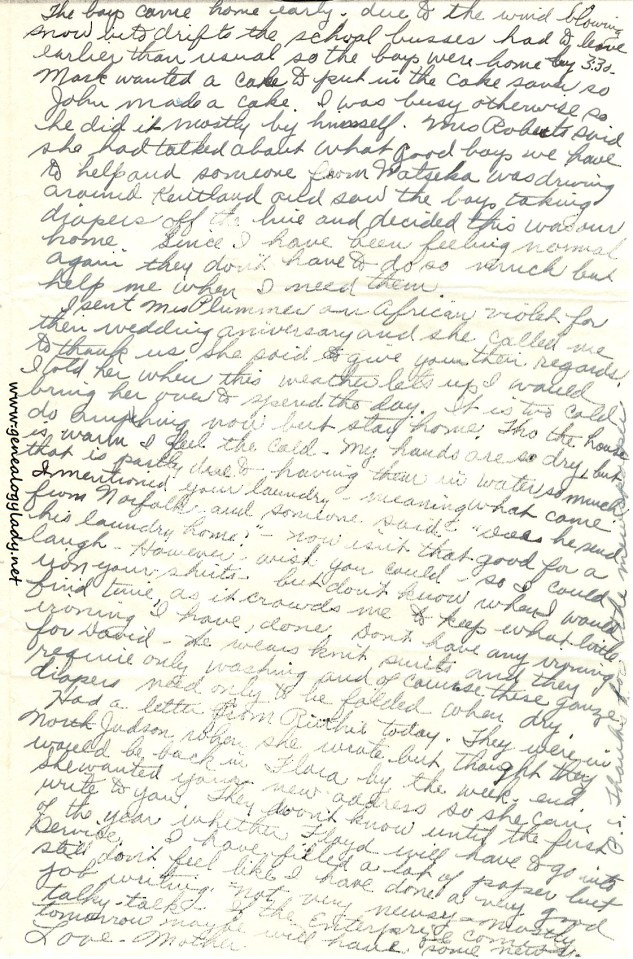 The boys came home early. due to the wind blowing
snow into drifts the school busses had to leave
earlier than usual so the boys were home by 3:30.
Mark wanted a cake to put in the cake saver so
John made a cake. I was busy otherwise so
he did it mostly by himself. Mrs Roberts said
she had talked about what good boys we have
to help and someone from Watseka was driving
around Kentland and saw the boys taking
diapers off the line and decided this was our
home. Since I have been feeling normal
again they don't have to do so much but
help me when I need them.
I sent Mrs Plummer an African violet for
their wedding anniversary and she called me
to thank us. She said to give you their regards.
I told her when this weather lets up I would
bring her over to spend the day. It is too cold
do anything now but stay home. Tho the house
is warm I feel the cold. My hands are so dry, but
that is partly due to having them in water so much
I mentioned your laundry - meaning what came
from Norfolk and someone said "Does he send
his laundry home?" - Now isn't that good for a
laugh - However wish you could so I could
iron your shirts. but don't know when I would
find time, as it crowds me to keep what little
ironing I have, done. Don't have any ironing
for David - He wears knit suits and they
require only washing and of course these gauze
diapers need only to be folded when dry.
Had a letter from Ruthie today. They were in
North Judson when she wrote but thought they
would be back in Flora by the week end
she wanted your new address so she can
write to you. They don't know until the first
of the year whether Floyd will have to go into
Service. I have filled a lot of paper but
still don't feel like I have done a very good
job writing. Not very newsy - mostly
talky-talk. If the Enterprise comes
tomorrow maybe will have some news.
Love - Mother
Thanks for the
www.genealogylady.net